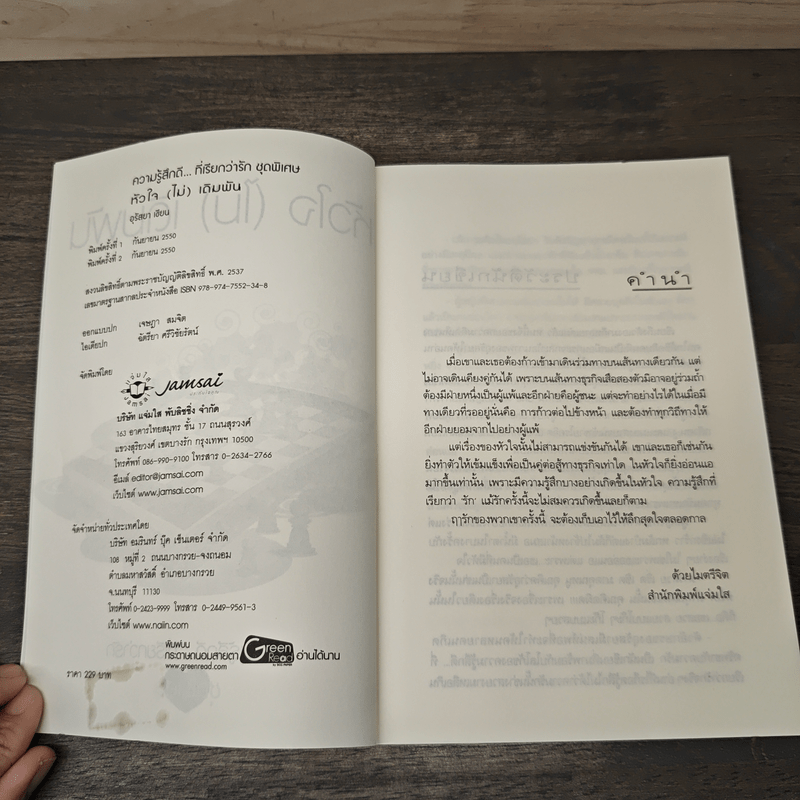 ความรู้สึกดี... ที่เรียกว่ารัก ชุดพิเศษ
หัวใจ (ไม่) เดิมพัน
อุรัสยา เขียน
พิมพ์ครั้งที่ 1 กันยายน 2550
พิมพ์ครั้งที่ 2 กันยายน 2550
สงวนลิขสิทธิ์ตามพระราชบัญญัติลิขสิทธิ์ พ.ศ. 2537
เลขมาตรฐานสากลประจำหนังสือ ISBN 978-974-7552-34-8
ออกแบบปก เจษฎา สมจิต
ไอเดียปก ฉัตรียา ศรีวิชัยรัตน์
จัดพิมพ์โดย
jamsai
บริษัท แจ่มใส พับลิชชิ่ง จำกัด
163 อาคารไทยสมุทร ชั้น 17 ถนนสุรวงศ์
แขวงสุริยวงศ์ เขตบางรัก กรุงเทพฯ 10500
โทรศัพท์ 086-990-9100 โทรสาร 0-2634-2766
อีเมล์ editor@jamsai.com
เว็บไซต์ www.jamsai.com
จัดจำหน่ายทั่วประเทศโดย
บริษัท อมรินทร์ บุ๊ค เซ็นเตอร์ จำกัด
108 หมู่ที่ 2 ถนนบางกรวย-จงถนอม
ตำบลมหาสวัสดิ์ อำเภอบางกรวย
จ.นนทบุรี 11130
โทรศัพท์ 0-2423-9999 โทรสาร 0-2449-9561-3
เว็บไซต์ www.naiin.com
พิมพ์บน
กระดาษถนอมสายตา Green Read อ่านได้นาน
www.greenread.com
ราคา 229 บาท
คำนำ
เมื่อเขาและเธอต้องก้าวเข้ามาเดินร่วมทางบนเส้นทางเดียวกัน แต่
ไม่อาจเดินเคียงคู่กันได้ เพราะบนเส้นทางธุรกิจเสือสองตัวมิอาจอยู่ร่วมถ้ำ
ต้องมีฝ่ายหนึ่งเป็นผู้แพ้และอีกฝ่ายคือผู้ชนะ แต่จะทำอย่างไรได้ในเมื่อมี
ทางเดียวที่รออยู่นั่นคือ การก้าวต่อไปข้างหน้า และต้องทำทุกวิถีทางให้
อีกฝ่ายยอมจากไปอย่างผู้แพ้
แต่เรื่องของหัวใจนั้นไม่สามารถแข่งขันกันได้ เขาและเธอก็เช่นกัน
ยิ่งทำตัวให้เข้มแข็งเพื่อเป็นคู่ต่อสู้ทางธุรกิจเท่าใด ในหัวใจก็ยิ่งอ่อนแอ
มากขึ้นเท่านั้น เพราะมีความรู้สึกบางอย่างเกิดขึ้นในหัวใจ ความรู้สึกที่
เรียกว่า 'รัก' แม้รักครั้งนี้จะไม่สมควรเกิดขึ้นเลยก็ตาม
ฤารักของพวกเขาครั้งนี้ จะต้องเก็บเอาไว้ให้ลึกสุดใจตลอดกาล
ด้วยไมตรีจิต
สำนักพิมพ์แจ่มใส